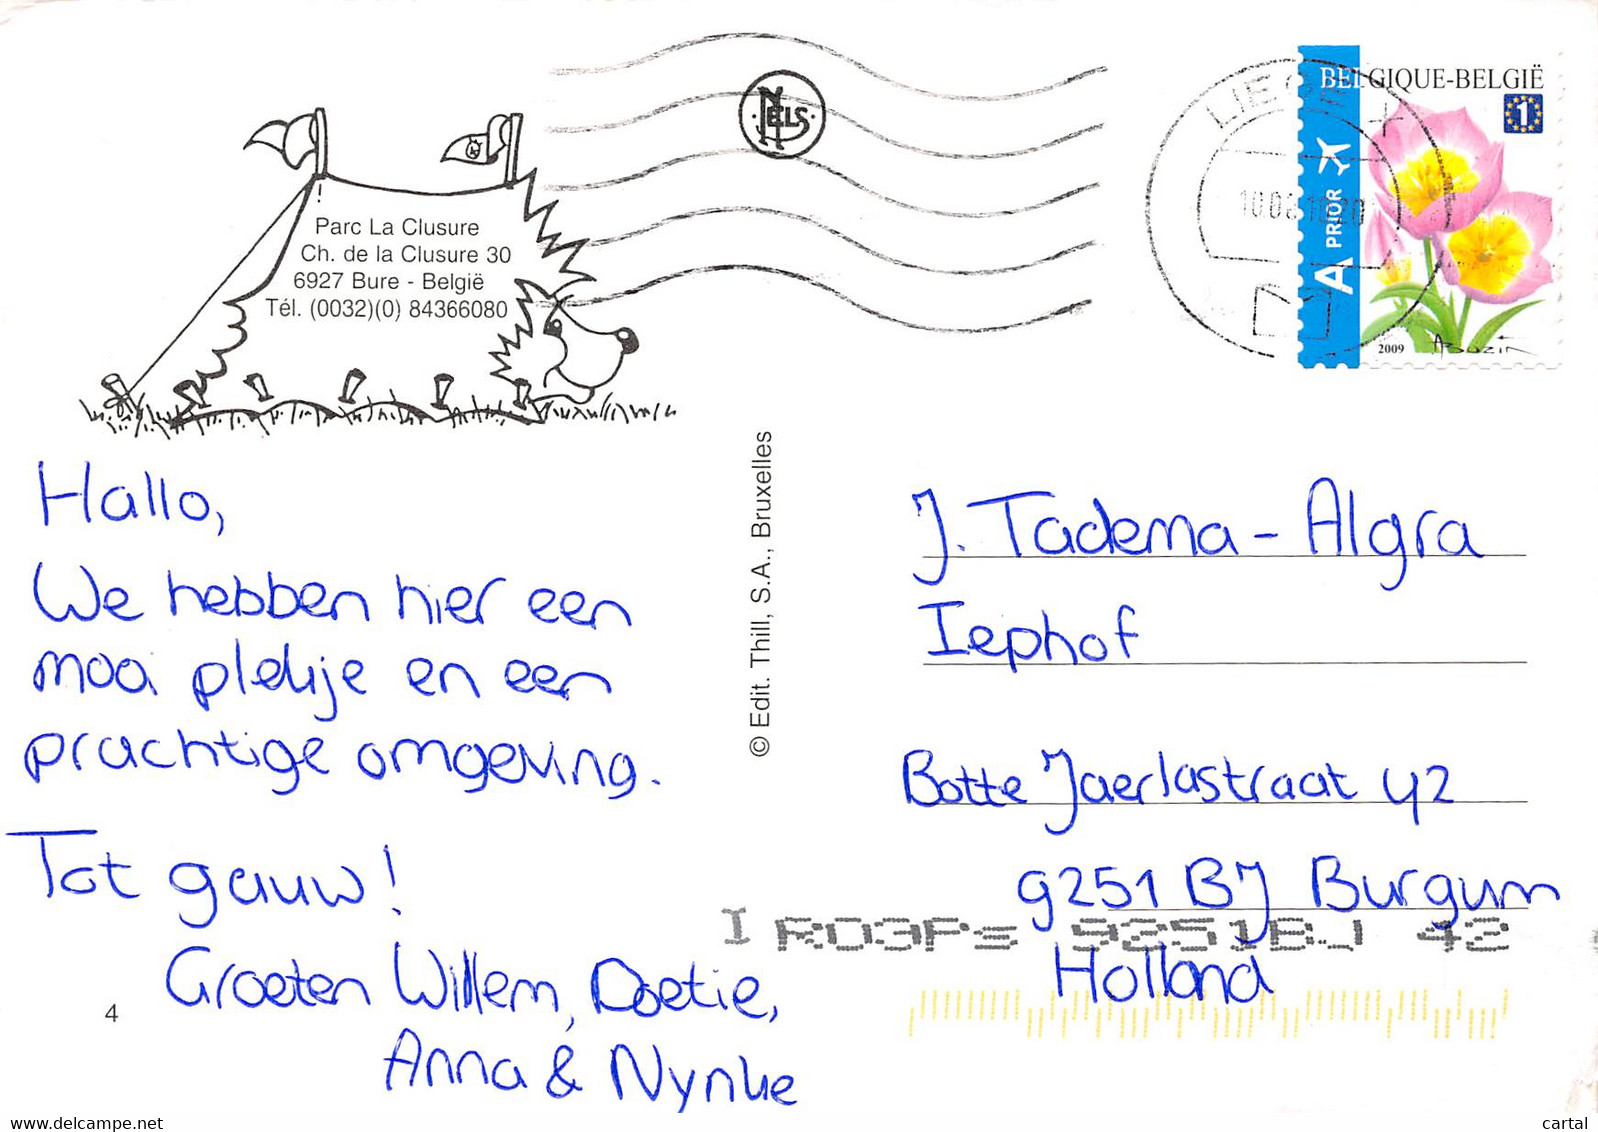 BELGIQUE-BELGIË
1
A PRIOR
2009
LIEGE X
NELS
Parc La Clusure
Ch. de la Clusure 30
6927 Bure - België
Tél. (0032)(0) 84366080
Hallo,
We hebben hier een
mooi plekje en een
prachtige omgeving.
Tot gauw!
Groeten Willem, Doetie,
Anna & Nynke
4
© Edit. Thill, S.A., Bruxelles
J. Tadema - Algra
Iephof
Botte Jaerlastraat 42
9251 BJ Burgum
I RO3Ps 9251BJ 42
Holland
www.delcampe.net
cartal